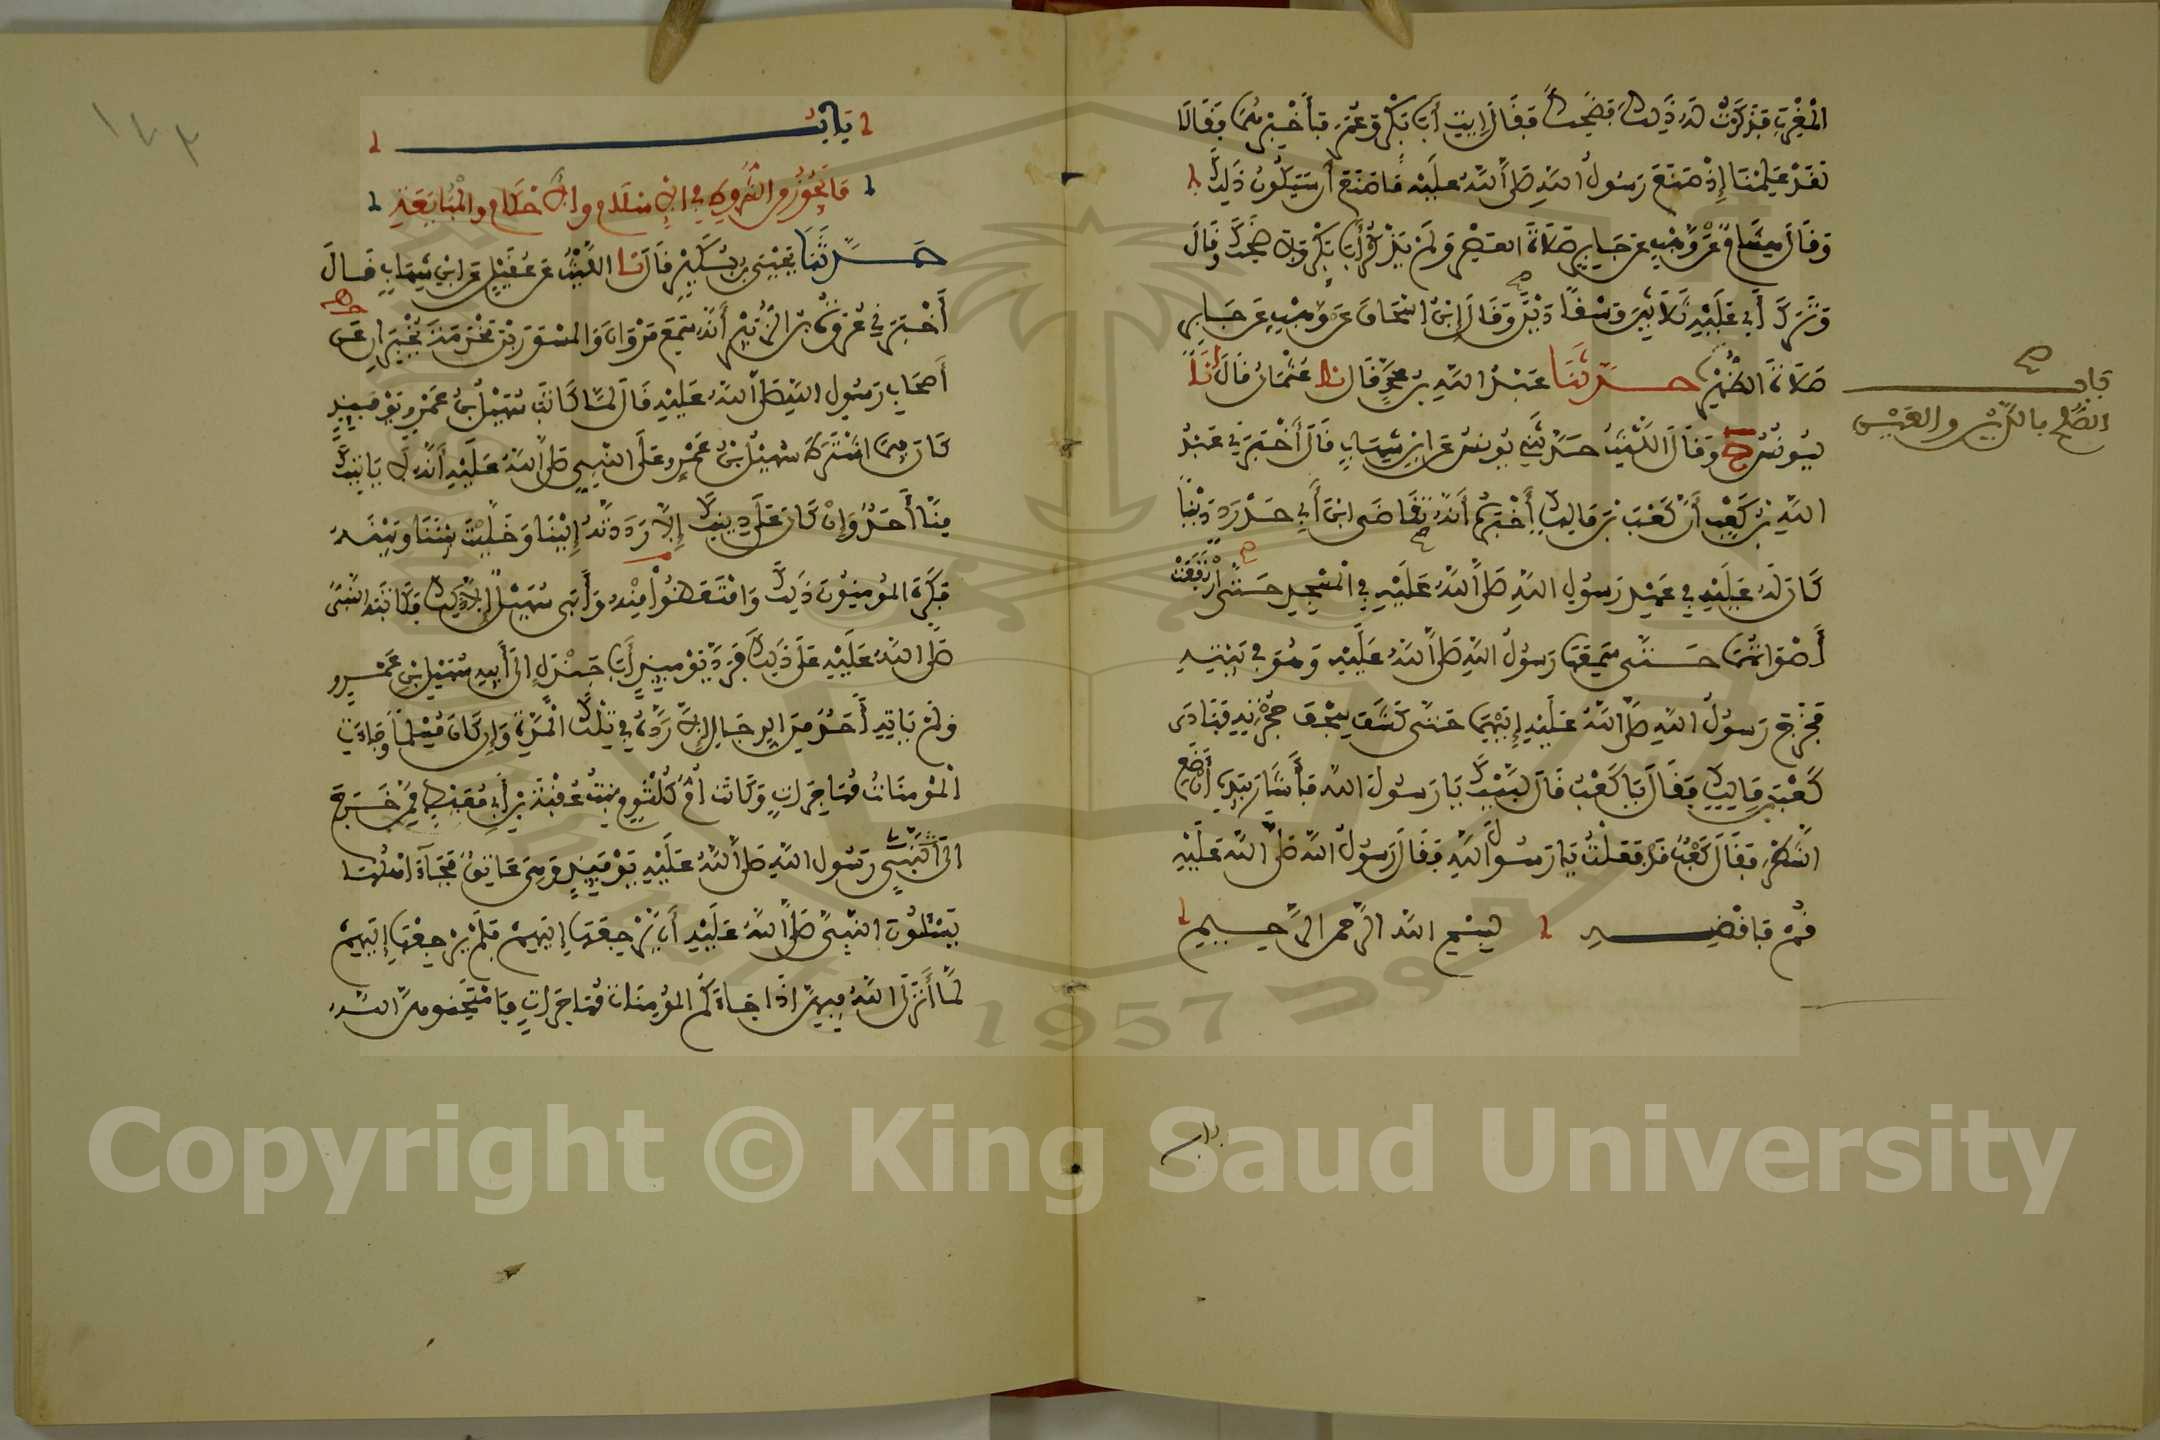 المغرب فذكرت له ذلك فضحك فقال ايت أبا بكر وعمر فأخبرهما فقالا
لقد علمنا إذ صنع رسول الله صلى الله عليه ما صنع أن سيكون ذلك
وقال هشام عن وهب عن جابر صلاة العصر ولم يذكر أبا بكر ولا ضحك وقال
وترك أبي عليه ثلاثين وسقا دينا وقال ابن اسحاق عن وهب عن جابر
صلاة الظهر حدثنا عبد الله بن محمد قال نا عثمان قال أنا
يونس ح وقال الليث حدثني يونس عن ابن شهاب قال أخبرني عبد
الله بن كعب أن كعب بن مالك أخبره أنه تقاضى ابن أبي حدرد دينا
كان له عليه في عهد رسول الله صلى الله عليه في المسجد حتى ارتفعت
أصواتهما حتى سمعها رسول الله صلى الله عليه وهو في بيته
فخرج رسول الله صلى الله عليه إليهما حتى كشف سجف حجرته فنادى
كعب بن مالك فقال يا كعب قال لبيك يا رسول الله فأشار بيده أن ضع
الشطر فقال كعب قد فعلت يا رسول الله فقال رسول الله صلى الله عليه
قم فاقضه بسم الله الرحمن الرحيم
باب
الصلح بالدين والعين
باب
١٧٣
باب
ما يجوز من الشروط في الإسلام والأحكام والمبايعة
حدثنا يحيى بن بكير قال نا الليث عن عقيل عن ابن شهاب قال
أخبرني عروة بن الزبير أنه سمع مروان والمسور بن مخرمة يخبران عن
أصحاب رسول الله صلى الله عليه قال لما كاتب سهيل بن عمرو يومئذ
كان مما اشترط سهيل بن عمرو على النبي صلى الله عليه أنه لا ياتيك
منا أحد وإن كان على دينك إلا رددته إلينا وخليت بيننا وبينه
فكره المومنون ذلك وامتعضوا منه وأبى سهيل إلا ذلك فكاتبه النبي
صلى الله عليه على ذلك فرد يومئذ أبا جندل الى أبيه سهيل بن عمرو
ولم ياته أحد من الرجال إلا رده في تلك المدة وإن كان مسلما وجاءت
المومنات مهاجرات وكانت أم كلثوم بنت عقبة بن أبي معيط ممن خرج
الى النبي رسول الله صلى الله عليه يومئذ وهي عاتق فجاء اهلها
يسئلون النبي صلى الله عليه أن يرجعها إليهم فلم يرجعها إليهم
لما أنزل الله فيهن اذا جاءكم المومنات مهاجرات فامتحنوهن الله
Copyright © King Saud University
1957